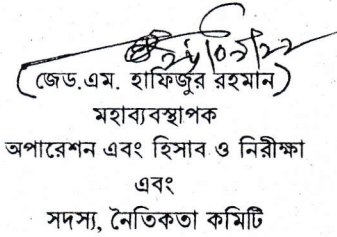 (জেড.এম. হাফিজুর রহমান)
মহাব্যবস্থাপক
অপারেশন এবং হিসাব ও নিরীক্ষা
এবং
সদস্য, নৈতিকতা কমিটি